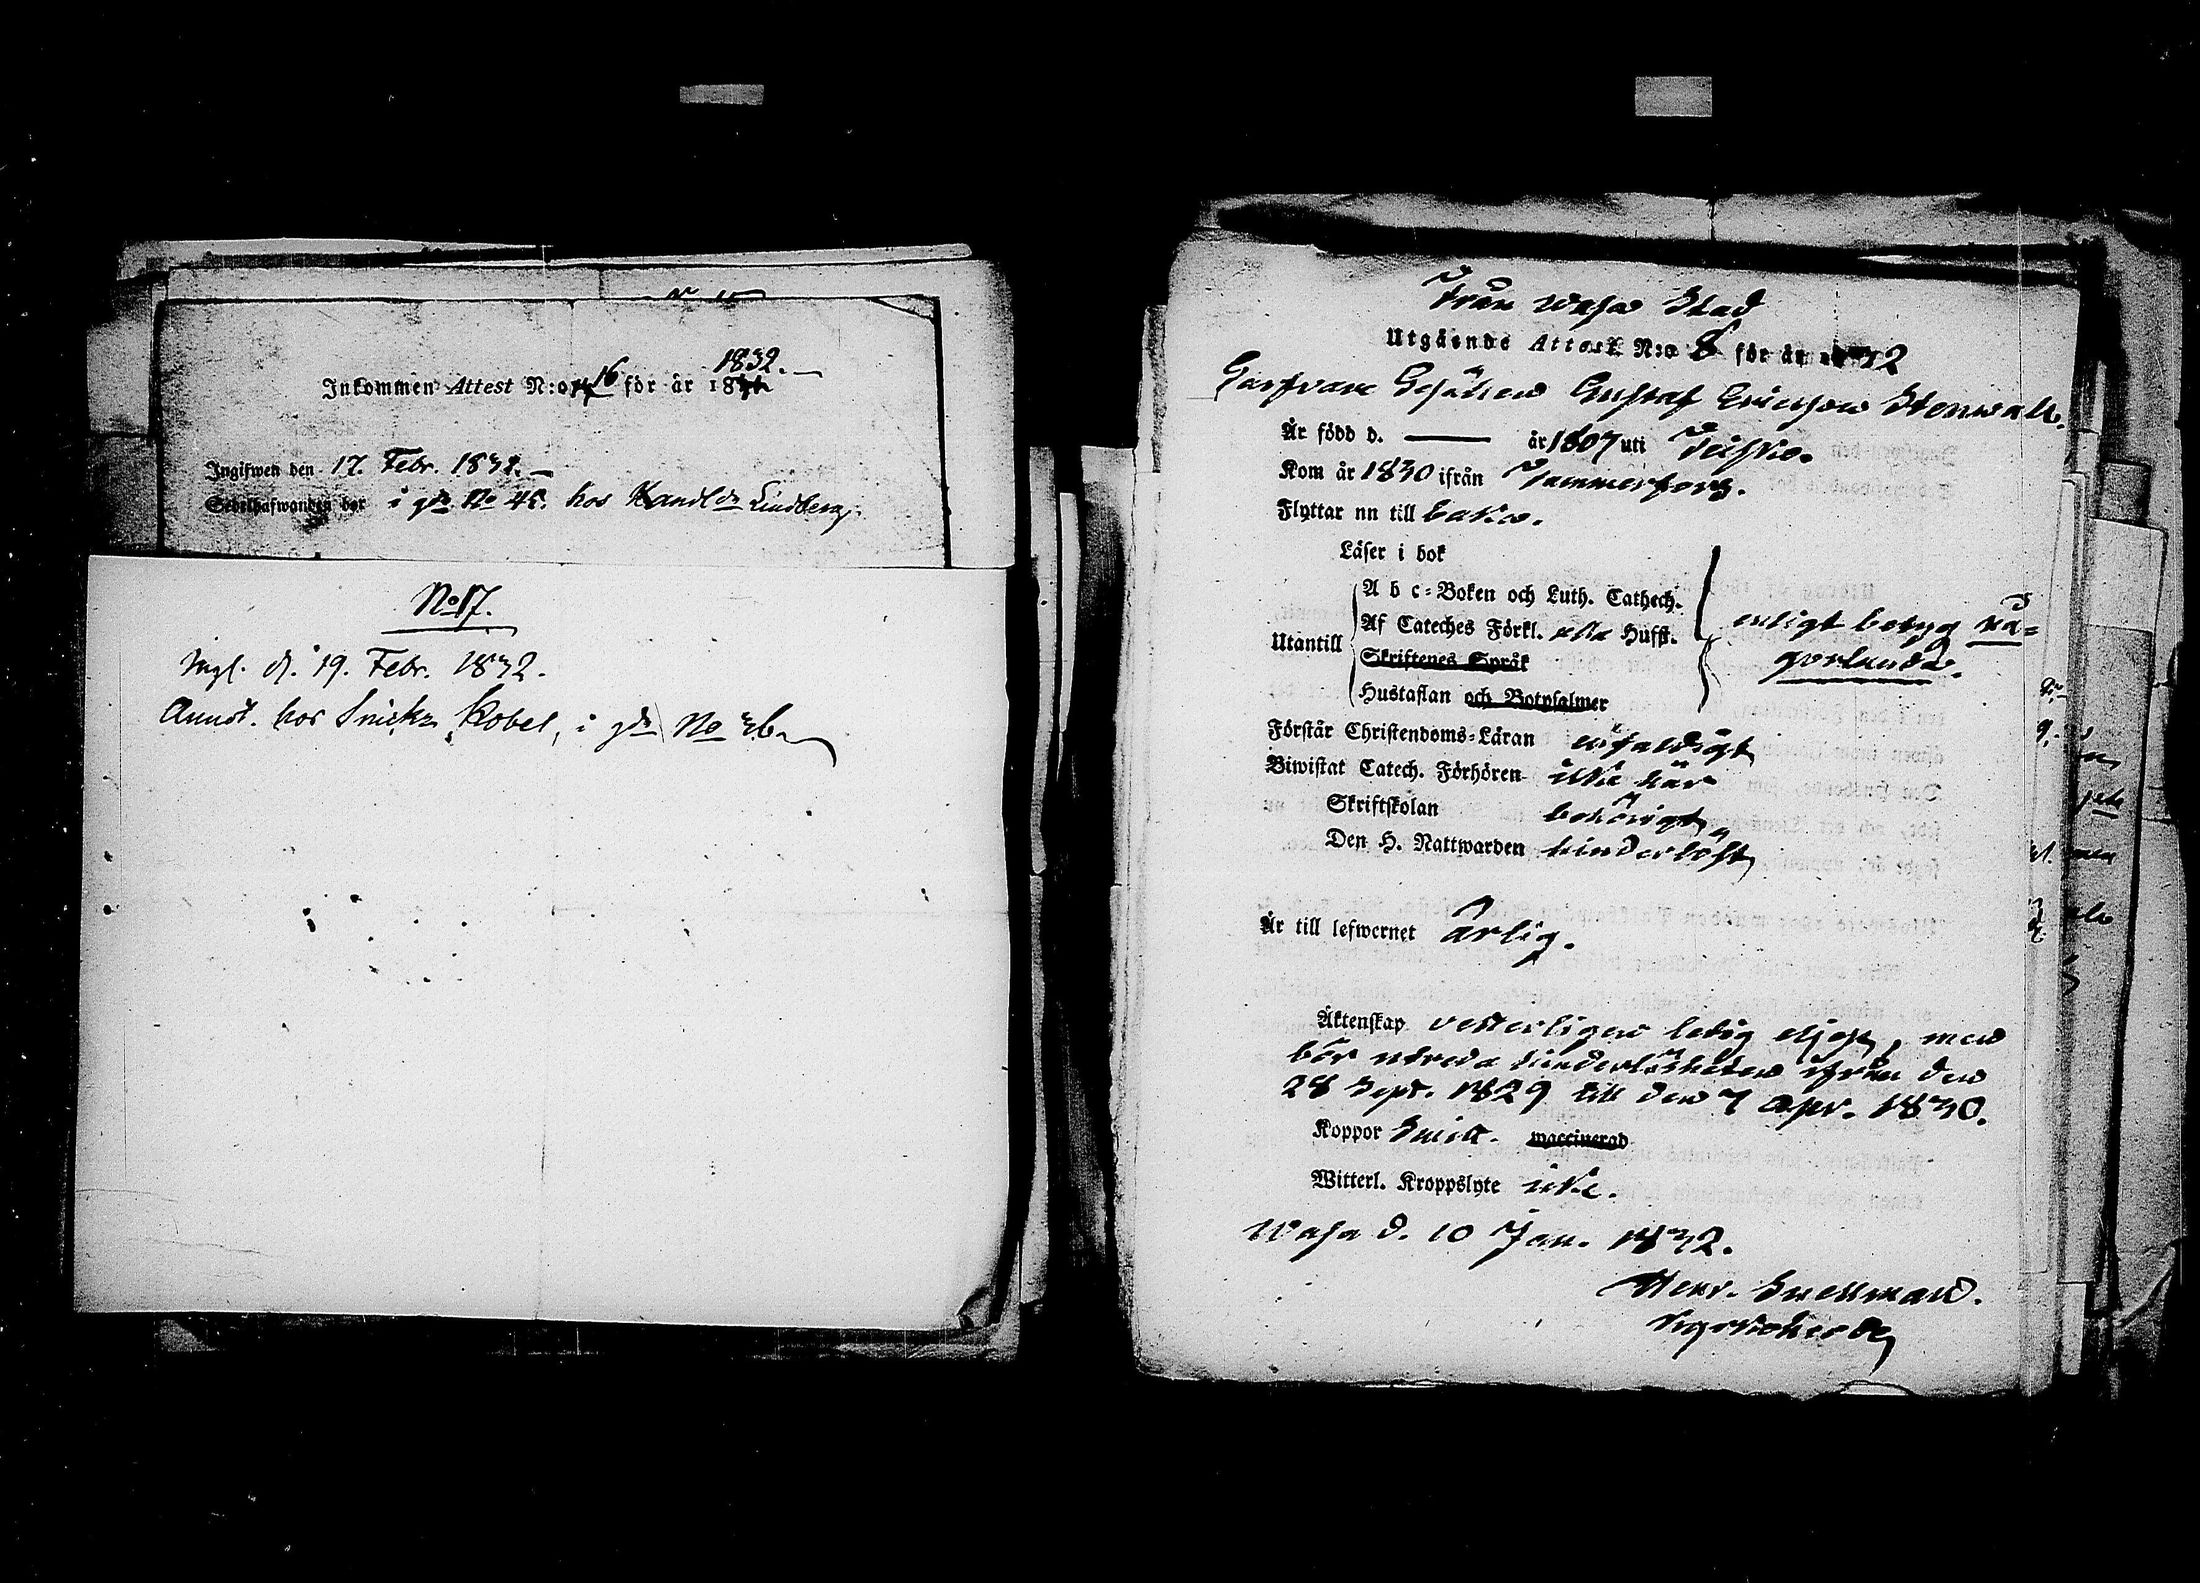 Inkommen Attest N:o 16 för år 1832.
Ingifwen den 17. Febr. 1832.
Sedelhafwanden bor i gdn No 45. hos Handl. Lindberg.
No 17.
Ingl. d. 19. Febr. 1832.
Annot. hos Snick. Kobel, i gdn No 36
Från Wasa Stad
Utgående Attest N:o 8 för år 1832
Garfvare Gesällen Gustaf Ericsson Stenwall.
Är född d. —— år 1807 uti
Kom år 1830 ifrån Tammerfors.
Flyttar nu till
Läser i bok
Utantill
A b c-Boken och Luth. Cathech.
Af Cateches Förkl. alla Hufst.
Skriftenes Språk
Hustaflan och Botpsalmer
enligt betyg nå=
gorlunda.
Förstår Christendoms-Läran enfaldigt
Biwistat Catech. Förhören icke här
Skriftskolan behörigt
Den H. Nattwarden hinderlöst
Är till lefwernet ärlig.
Äktenskap ledig men
bör utreda hinderlösheten ifrån den
28 Sept. 1829 till den 7 Apr. 1830.
Koppor haft. waccinerad
Witterl. Kroppslyte icke.
Wasa d. 10 Jan. 1832.
Henr. Snellman.
Kyrkoherde